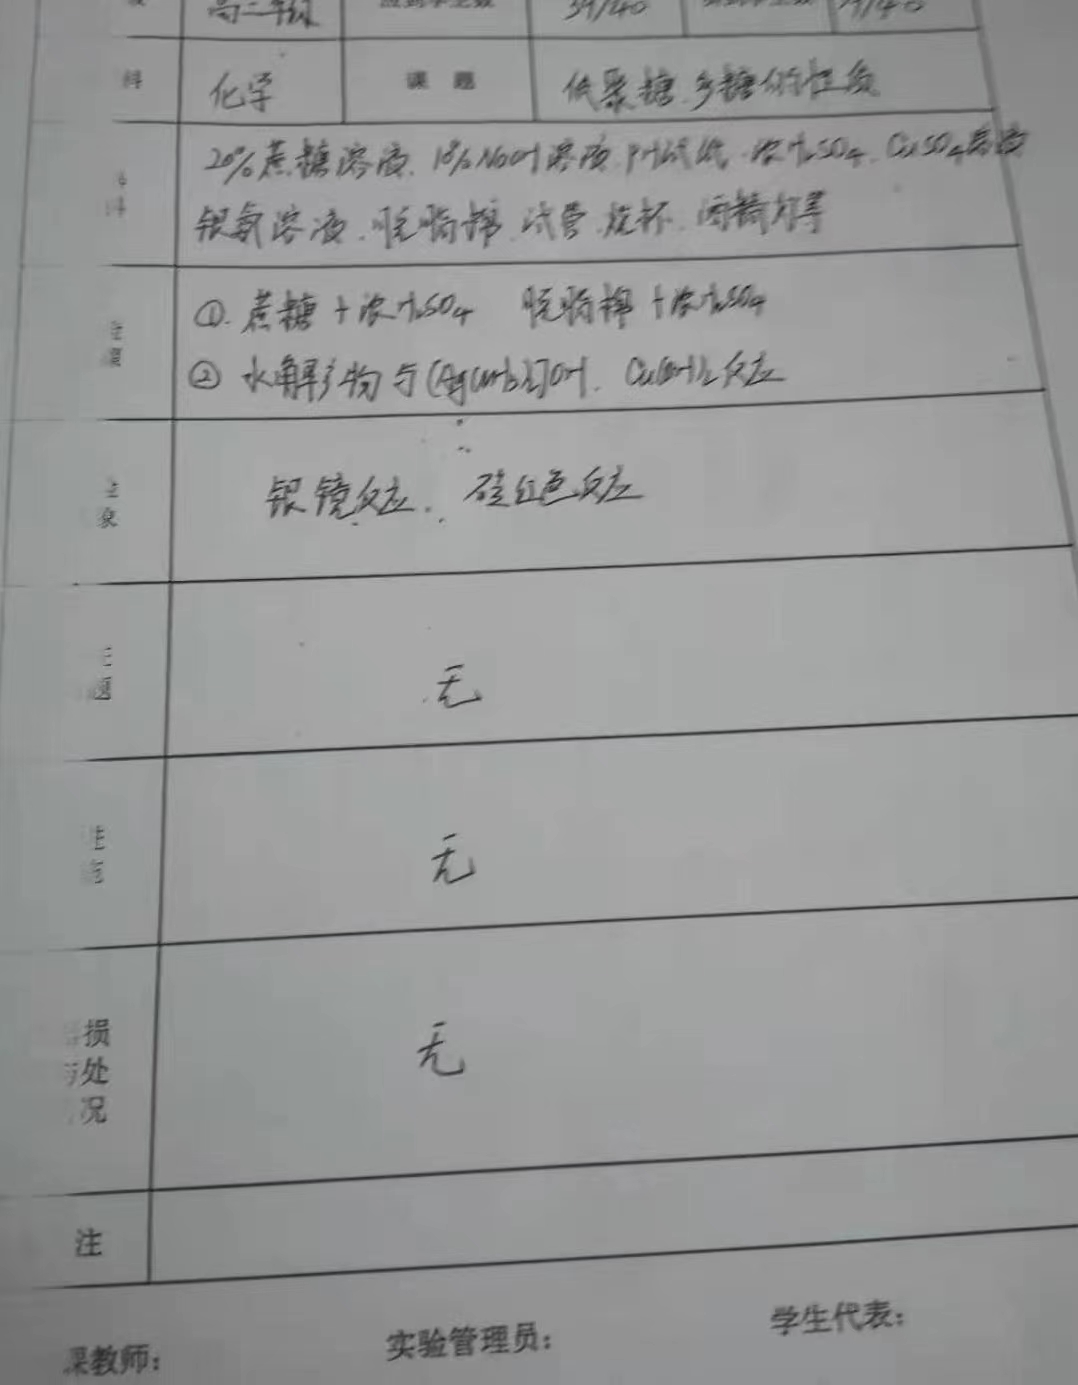 高二年级 应到学生数 39/40
科 化学 课题 低聚糖、多糖的性质
20%蔗糖溶液、10%NaOH溶液、PH试纸、浓H₂SO₄、CuSO₄溶液
银氨溶液、脱脂棉、试管、烧杯、酒精灯等
①. 蔗糖+浓H₂SO₄ 脱脂棉+浓H₂SO₄
② 水解产物与[Ag(NH₃)₂]OH、Cu(OH)₂反应
象 银镜反应、砖红色反应
无
无
损
处
况
无
注
课教师: 实验管理员: 学生代表: